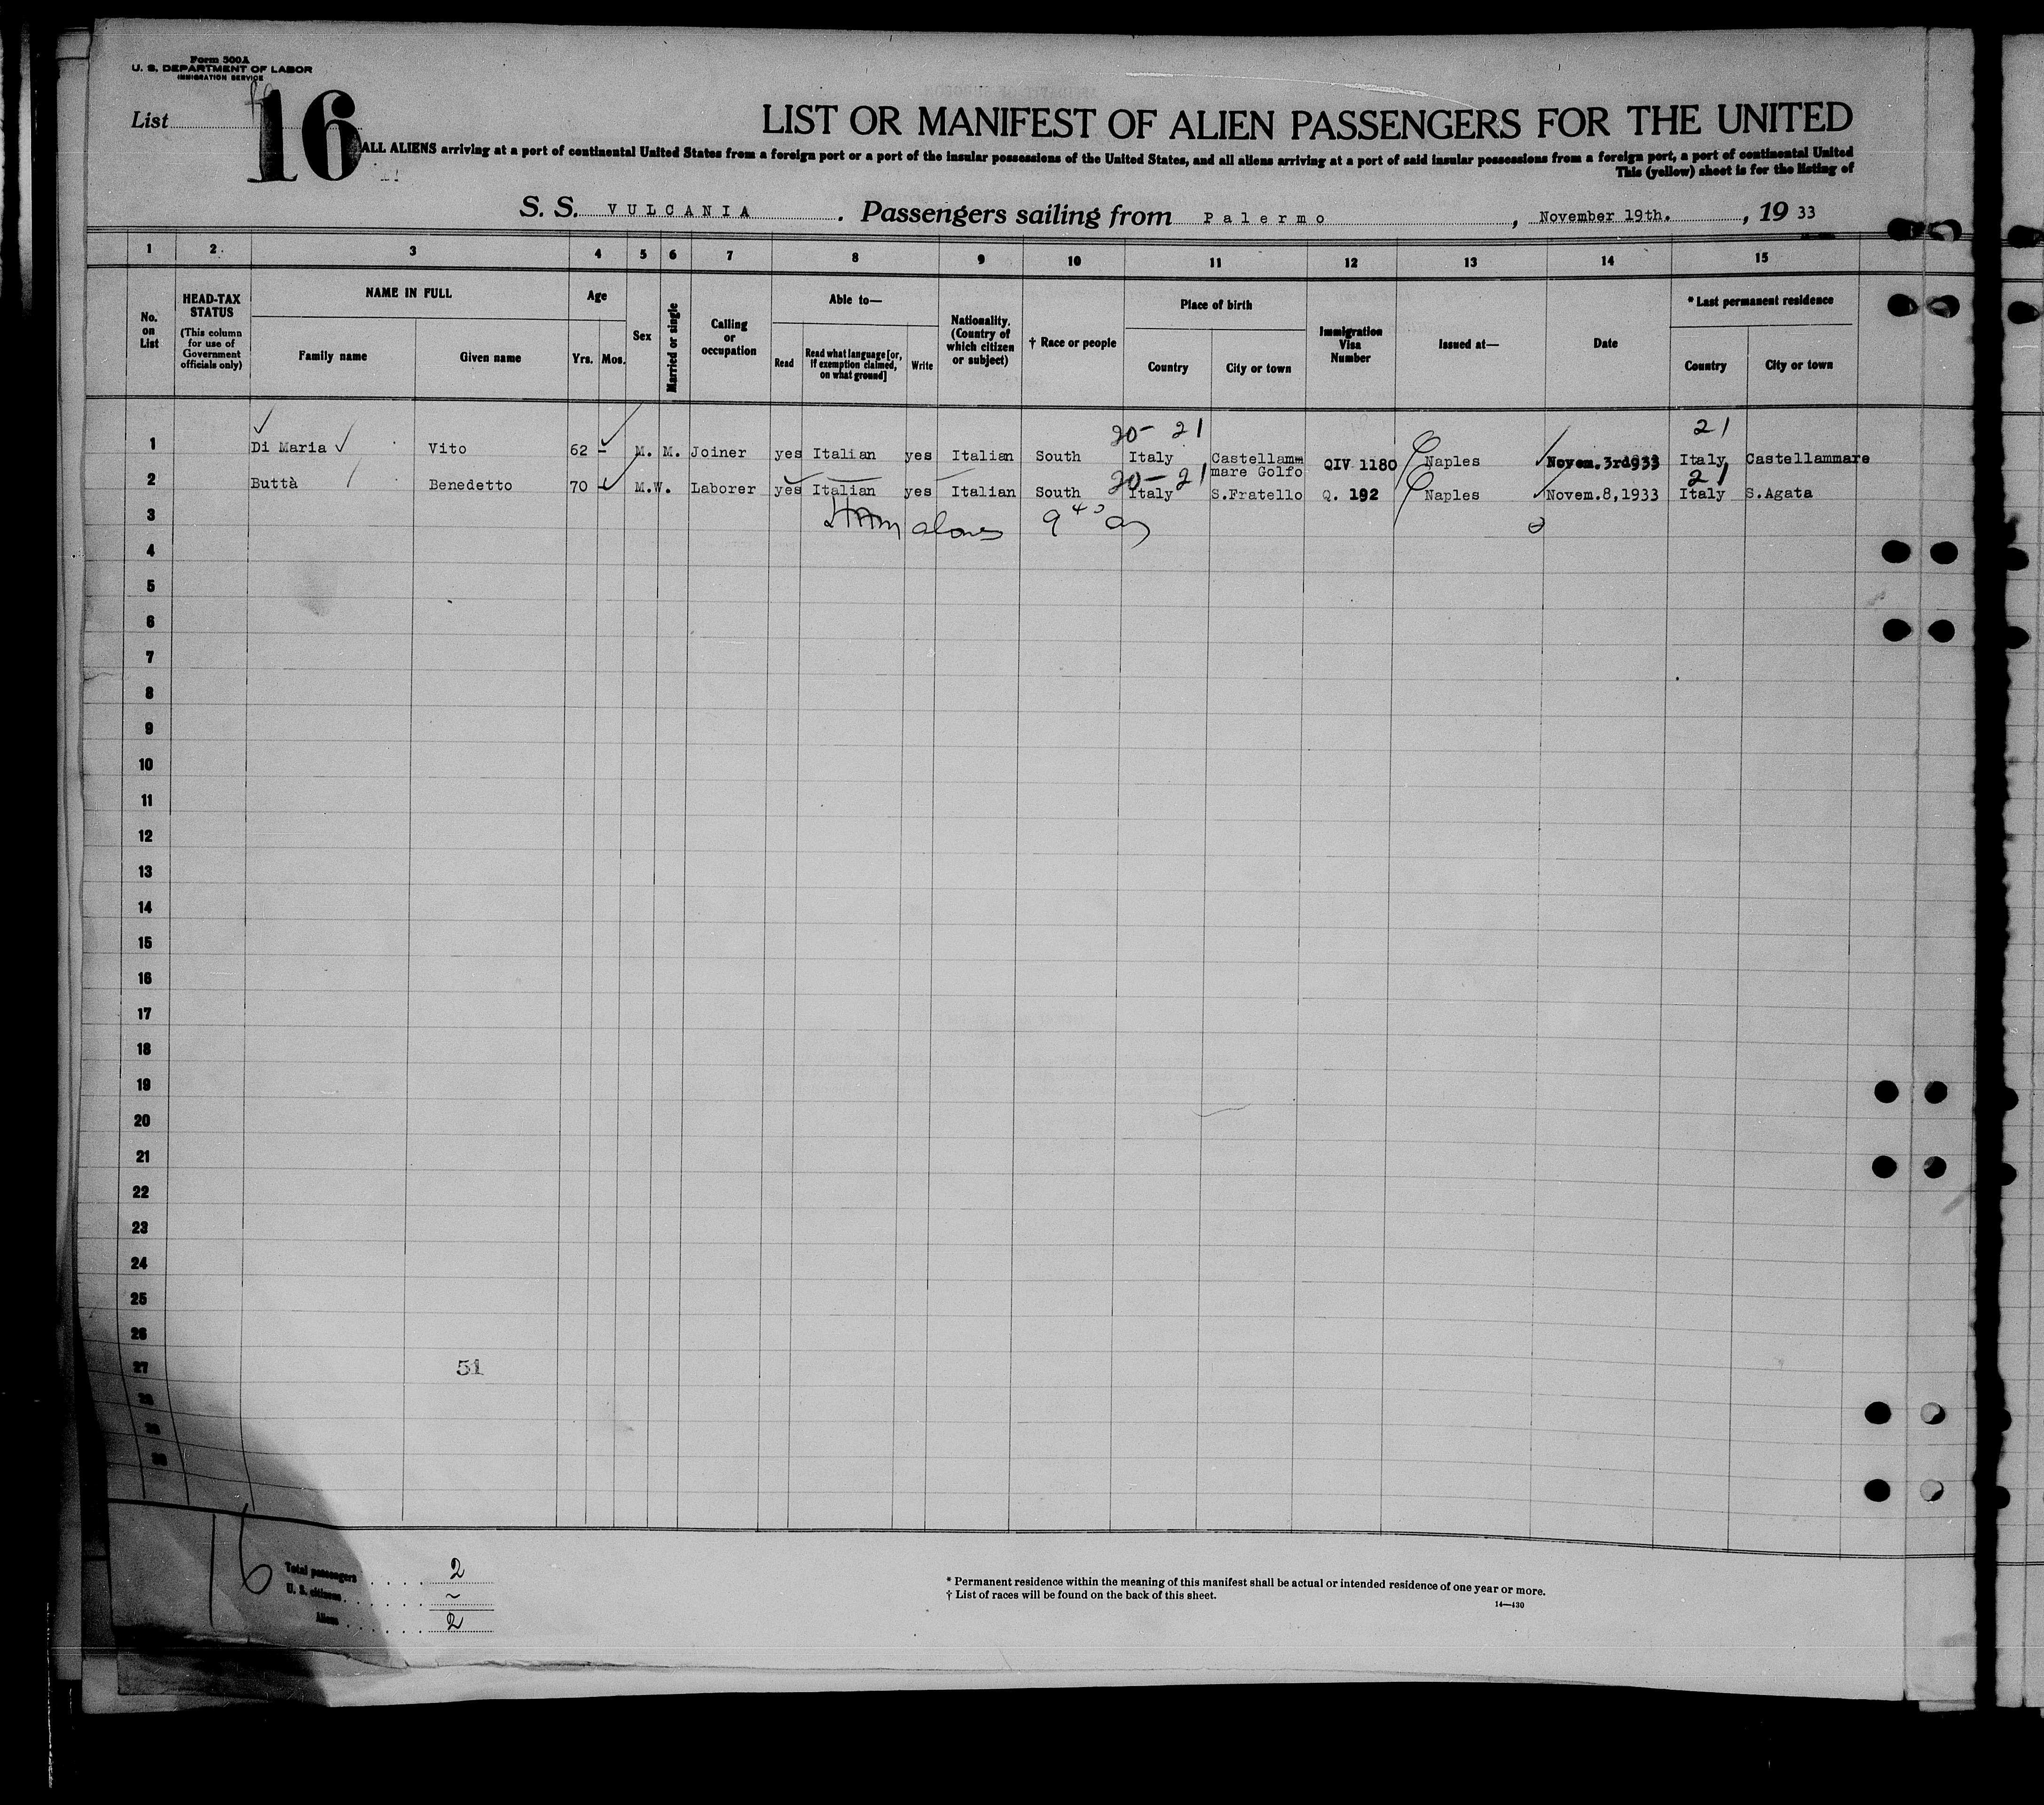 Form 500A
U. S. DEPARTMENT OF LABOR
IMMIGRATION SERVICE
List 16
LIST OR MANIFEST OF ALIEN PASSENGERS FOR THE UNITED
ALL ALIENS arriving at a port of continental United States from a foreign port or a port of the insular possessions of the United States, and all aliens arriving at a port of said insular possessions from a foreign port, a port of continental United
This (yellow) sheet is for the listing of
S. S. VULCANIA . Passengers sailing from Palermo , November 19th. , 19 33
1 2 3 4 5 6 7 8 9 10 11 12 13 14 15
No. on List
HEAD-TAX STATUS (This column for use of Government officials only)
NAME IN FULL
Family name
Given name
Age
Yrs. Mos.
Sex
Married or single
Calling or occupation
Able to—
Read
Read what language [or, if exemption claimed, on what ground]
Write
Nationality. (Country of which citizen or subject)
† Race or people
Place of birth
Country
City or town
Immigration Visa Number
Issued at—
Date
* Last permanent residence
Country
City or town
20- 21 21
1 Di Maria Vito 62 - M. M. Joiner yes Italian yes Italian South Italy Castellamm QIV 1180 Naples Novem.3rd933 Italy Castellammare
mare Golfo
20-21 21
2 Buttà Benedetto 70 - M.W. Laborer yes Italian yes Italian South Italy S.Fratello Q. 192 Naples Novem.8,1933 Italy S.Agata
3
4
5
6
7
8
9
10
11
12
13
14
15
16
17
18
19
20
21
22
23
24
25
26
27 51
28
29
30
16
Total passengers 2
U. S. citizens ~
Aliens 2
* Permanent residence within the meaning of this manifest shall be actual or intended residence of one year or more.
† List of races will be found on the back of this sheet.
14—430